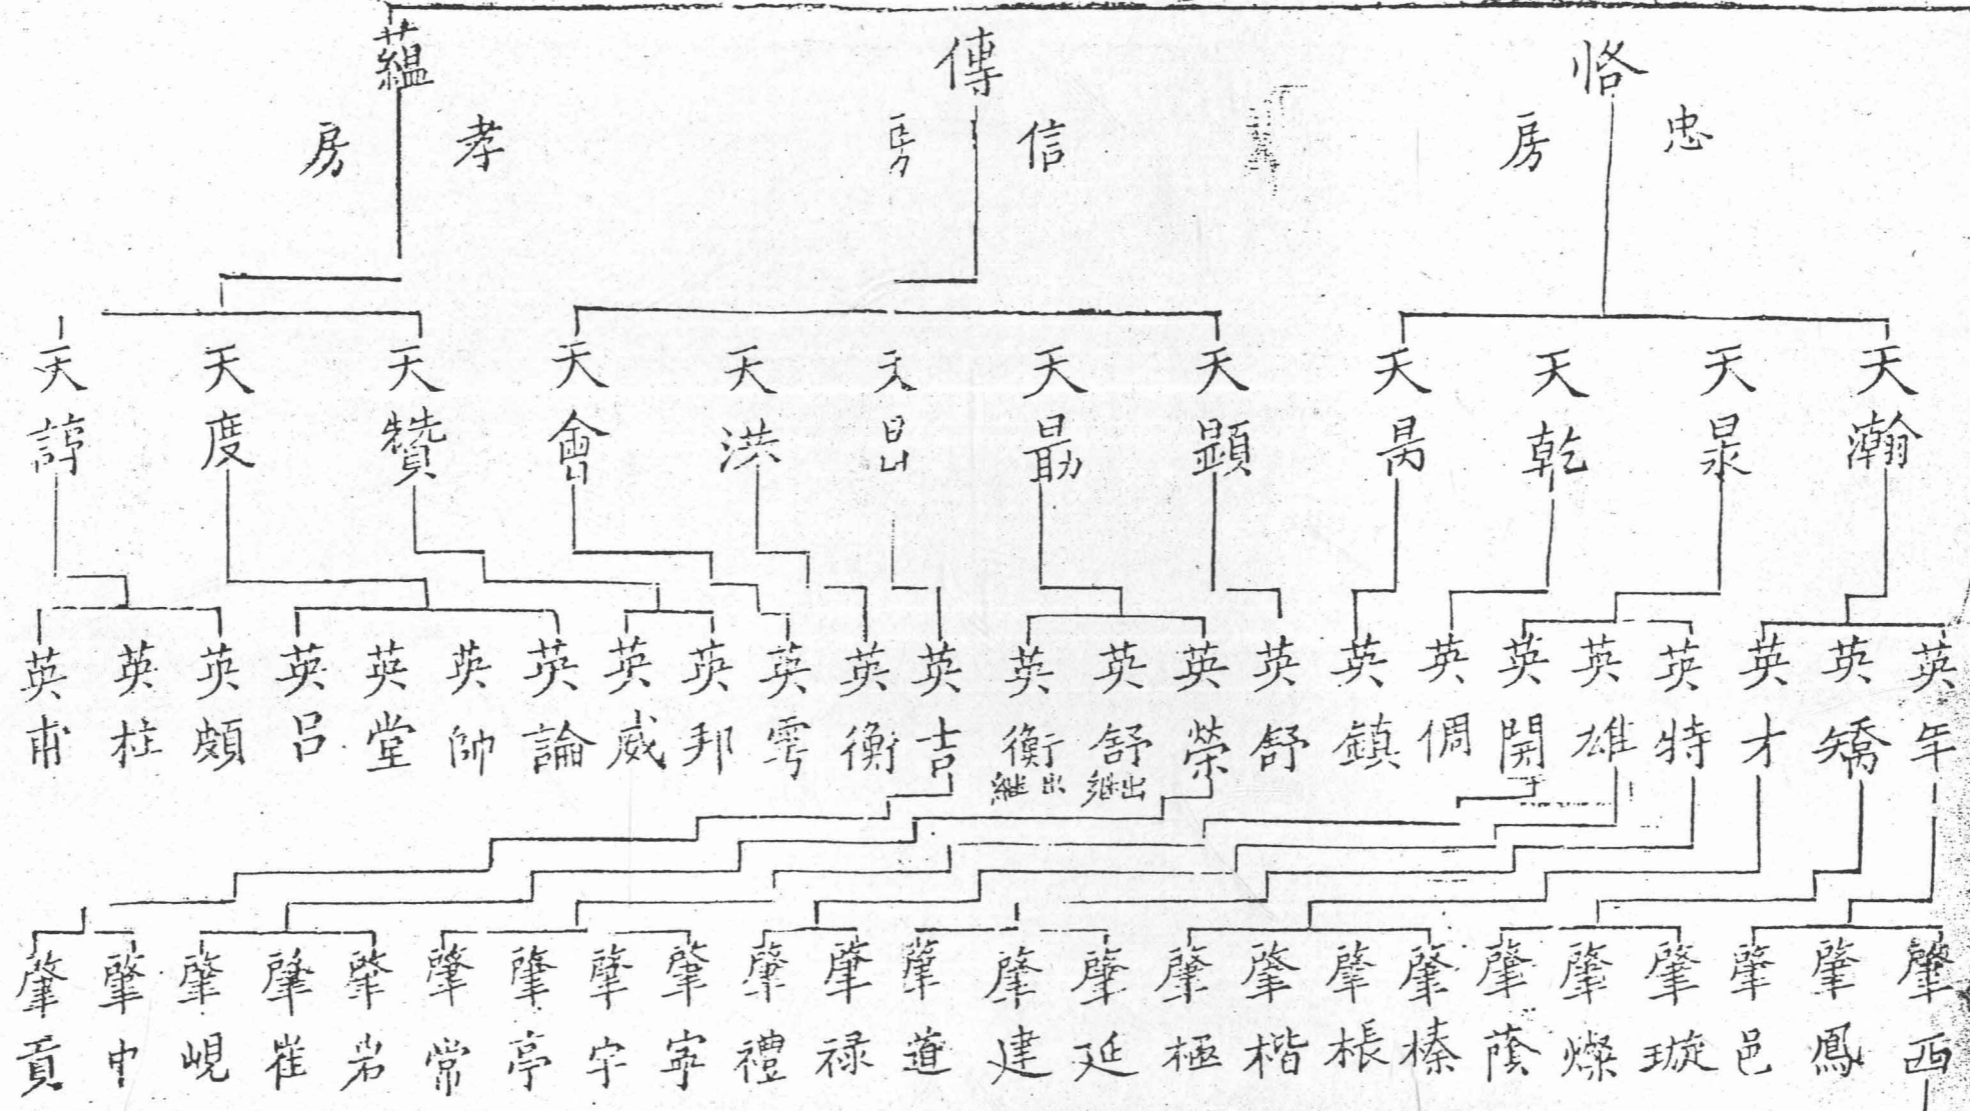 恪 傳 蘊
忠房 信房 孝房
天瀚 天㫮 天乾 天昺 天顯 天勗 天昆 天洪 天會 天贊 天度 天諄
英年 英矯 英才 英特 英雄 英開 英倜 英鎮 英舒 英榮 英舒 英衡 英吉 英衡 英雩 英邦 英威 英論 英帥 英堂 英呂 英頗 英柱 英甫
出継 出継
肇西 肇鳳 肇邑 肇璇 肇燦 肇蔭 肇榛 肇棖 肇楷 肇極 肇延 肇建 肇道 肇祿 肇禮 肇寧 肇宇 肇亭 肇常 肇岩 肇崔 肇峴 肇中 肇貢